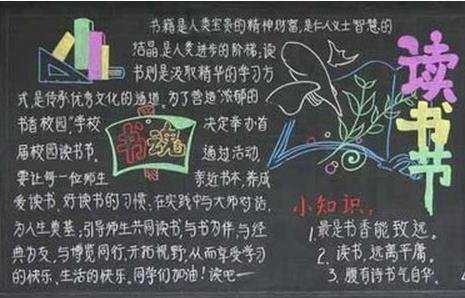 书籍是人类宝贵的精神财富,是仁人义士智慧的
结晶,是人类进步的阶梯;读
书则是汲取精华的学习方
式,是传承优秀文化的通道。为了营造“浓郁的
书香校园”,学校 决定举办首
届校园读书节。 通过活动,
要让每一位师生 亲近书本,养成
爱读书、好读书的习惯;在实践中与大师对话,
为人生奠基;引导师生共同读书,与书为伴,与经
典为友,与博览同行,开拓视野,从而享受学习
的快乐、生活的快乐。同学们加油!读吧—
书魂
读书节
小知识:
1.最是书香能致远。
2.读书,远离平庸。
3.腹有诗书气自华。